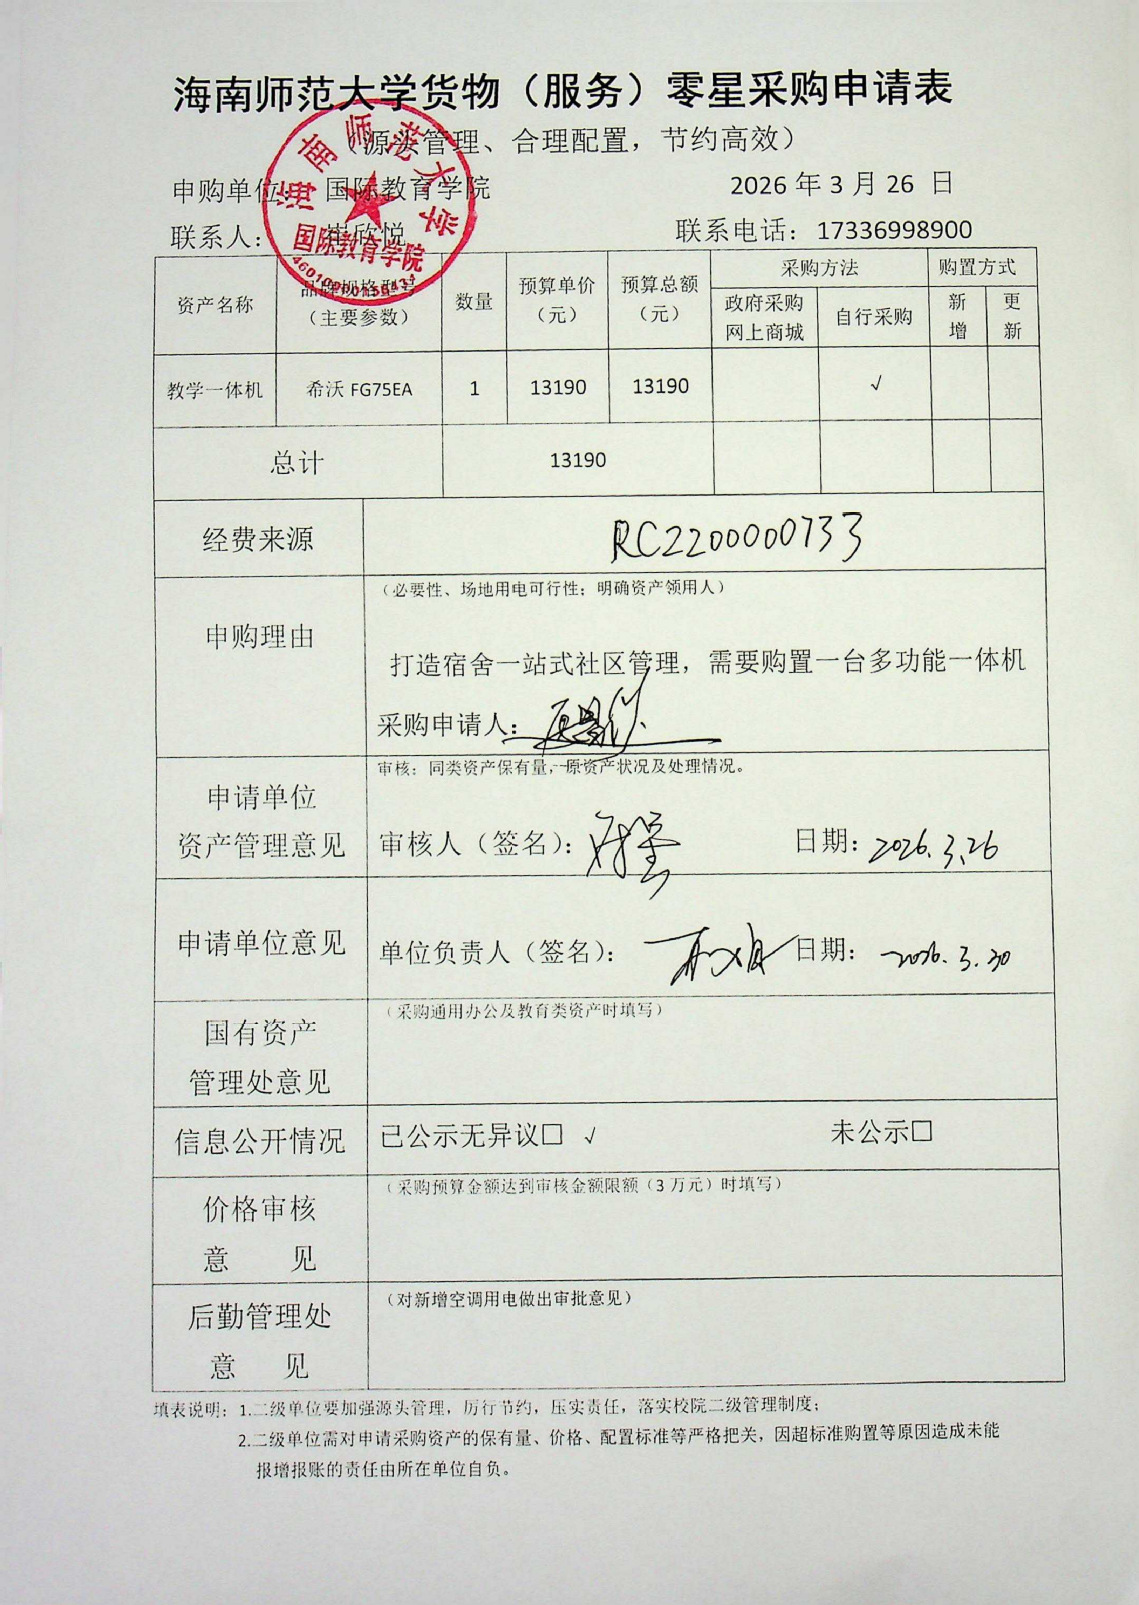 海南师范大学货物（服务）零星采购申请表
（源头管理、合理配置，节约高效）
申购单位：国际教育学院 2026 年 3 月 26 日
联系人： 欣悦 联系电话：17336998900
海南师范大学
国际教育学院
资产名称 品牌规格型号（主要参数） 数量 预算单价（元） 预算总额（元） 采购方法 购置方式
政府采购网上商城 自行采购 新增 更新
教学一体机 希沃 FG75EA 1 13190 13190 √
总计 13190
经费来源 RC2200000733
申购理由 （必要性、场地用电可行性；明确资产领用人）
打造宿舍一站式社区管理，需要购置一台多功能一体机
采购申请人：
申请单位资产管理意见 审核：同类资产保有量，原资产状况及处理情况。
审核人（签名）： 日期：2026.3.26
申请单位意见 单位负责人（签名）： 日期：2026.3.30
国有资产管理处意见 （采购通用办公及教育类资产时填写）
信息公开情况 已公示无异议□ √ 未公示□
价格审核意 见 （采购预算金额达到审核金额限额（3 万元）时填写）
后勤管理处意 见 （对新增空调用电做出审批意见）
填表说明：1.二级单位要加强源头管理，厉行节约，压实责任，落实校院二级管理制度；
2.二级单位需对申请采购资产的保有量、价格、配置标准等严格把关，因超标准购置等原因造成未能
报增报账的责任由所在单位自负。